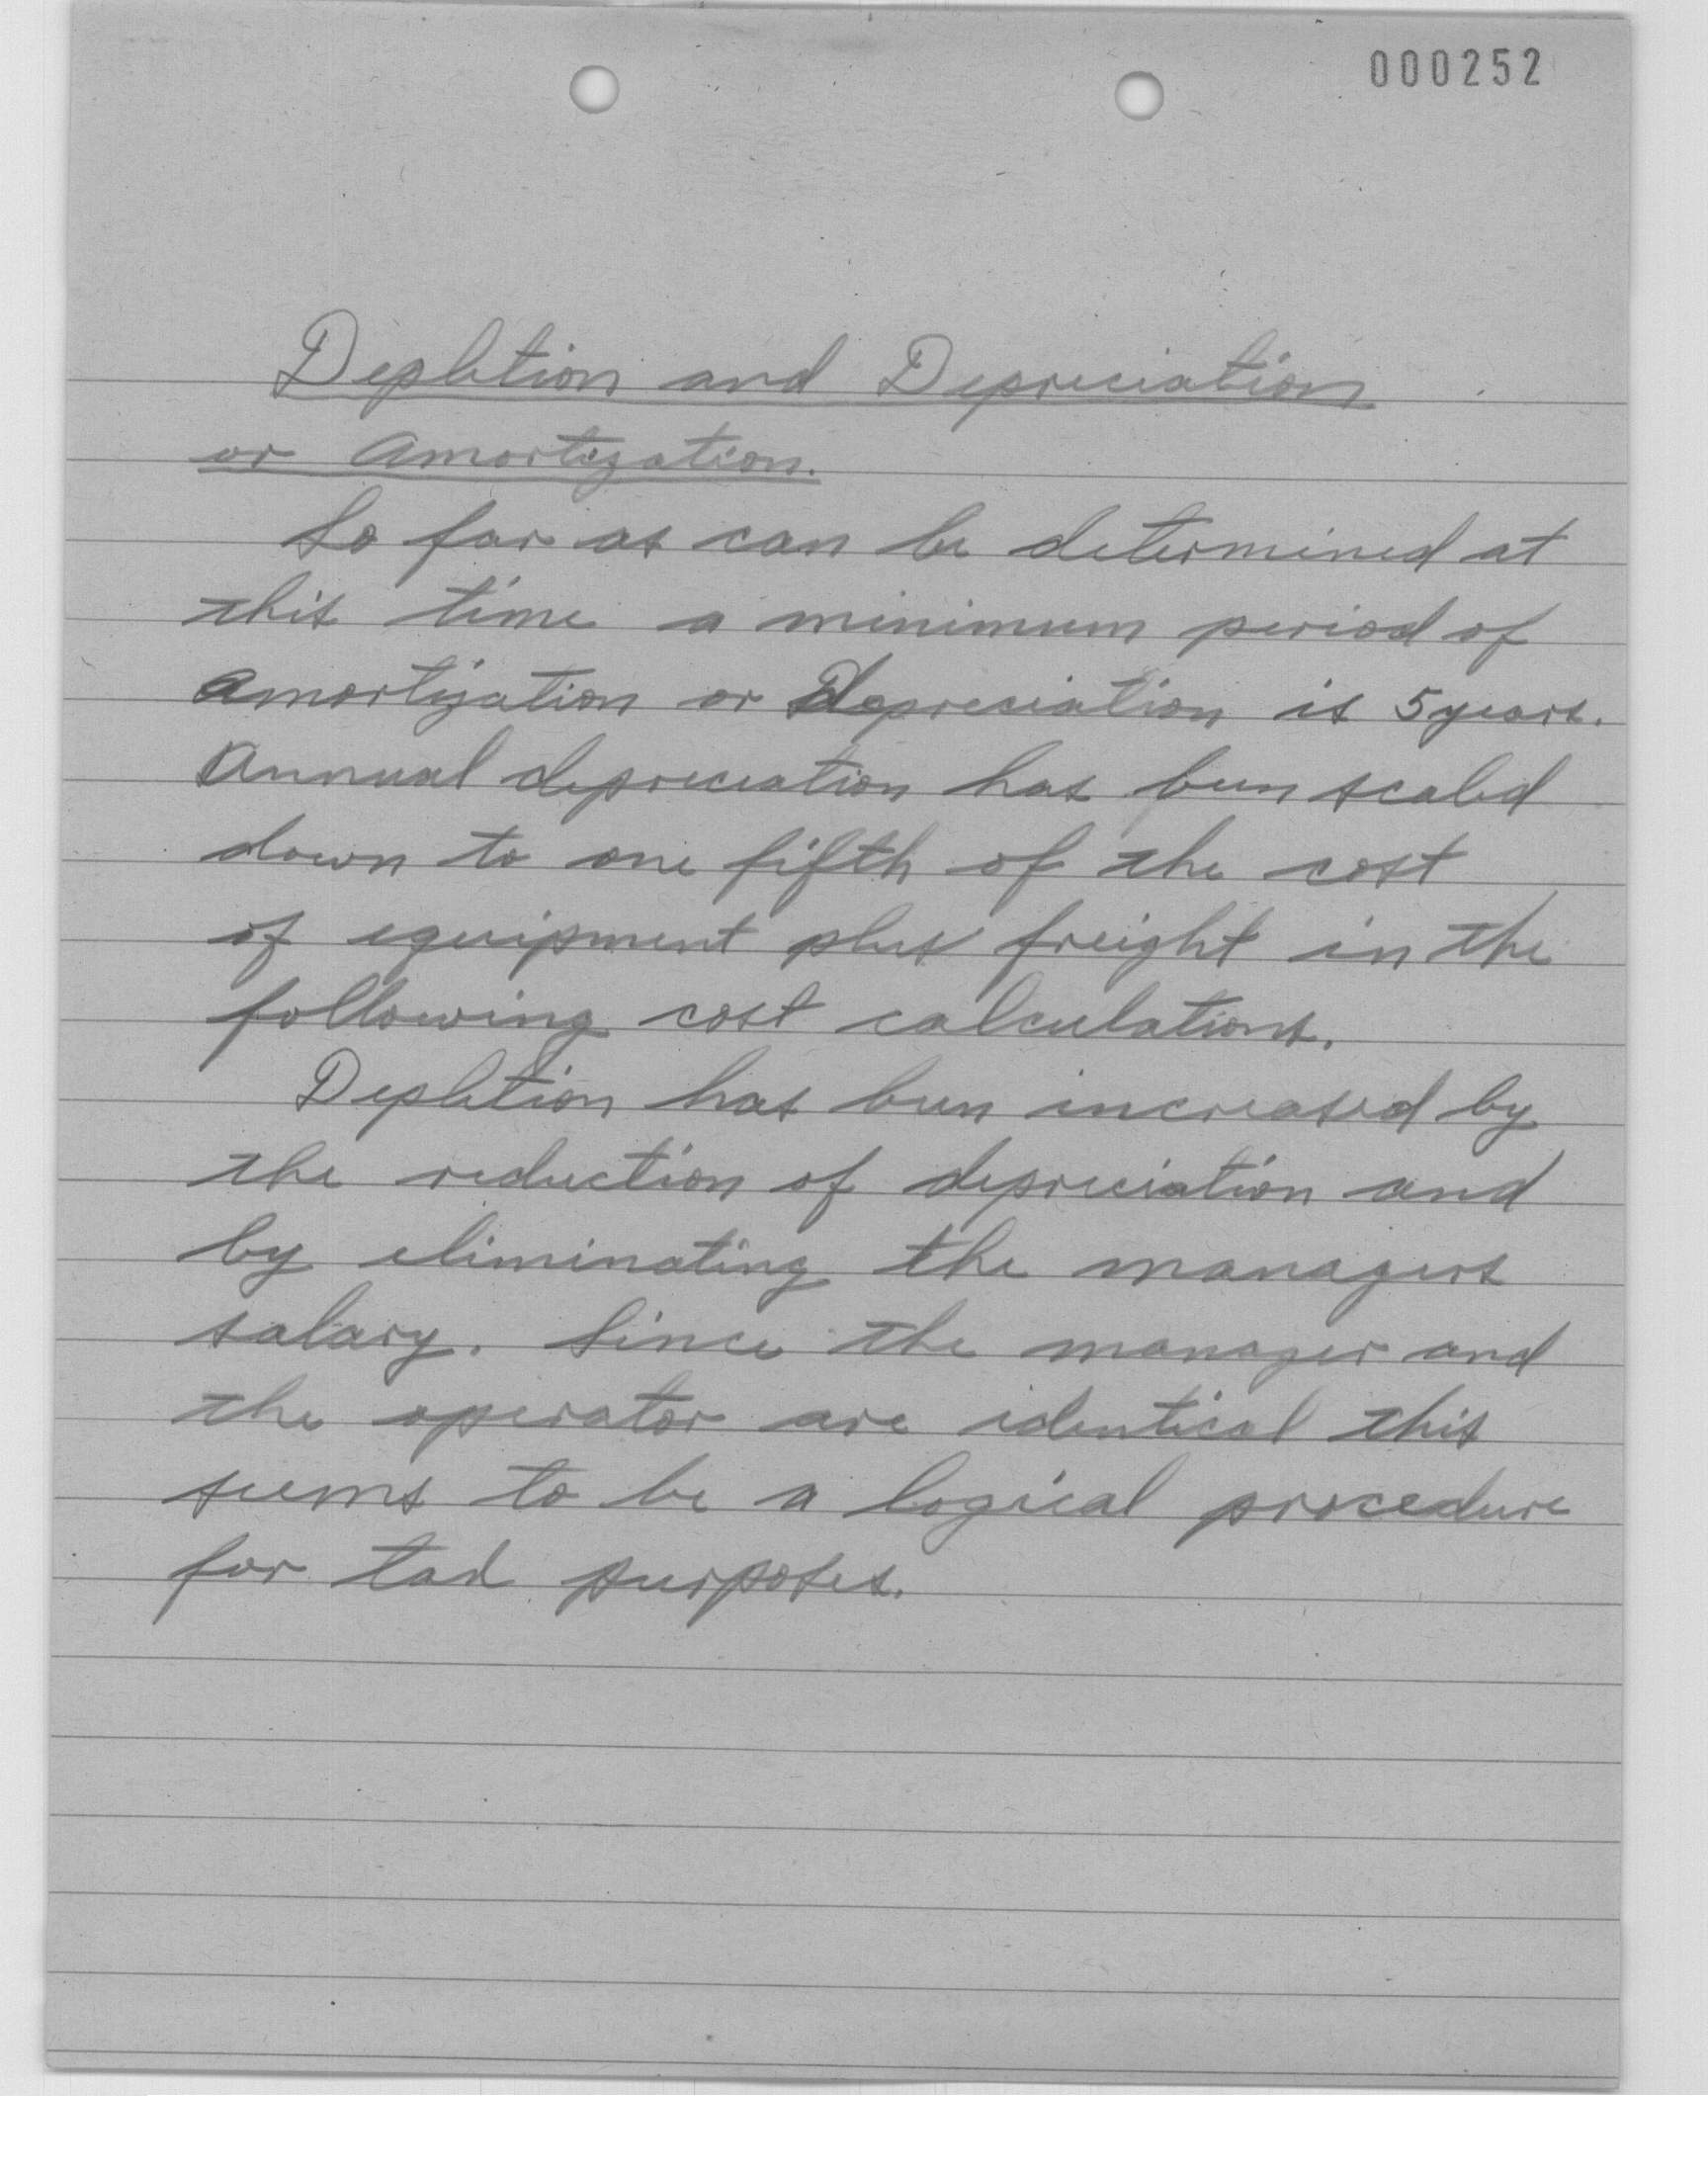 000252
Depletion and Depreciation
or Amortization.
So far as can be determined at
this time a minimum period of
Amortization or Depreciation is 5 years.
Annual depreciation has been scaled
down to one fifth of the cost
of equipment plus freight in the
following cost calculations.
Depletion has been increased by
the reduction of depreciation and
by eliminating the managers
salary. Since the manager and
the operator are identical this
seems to be a logical procedure
for purposes.